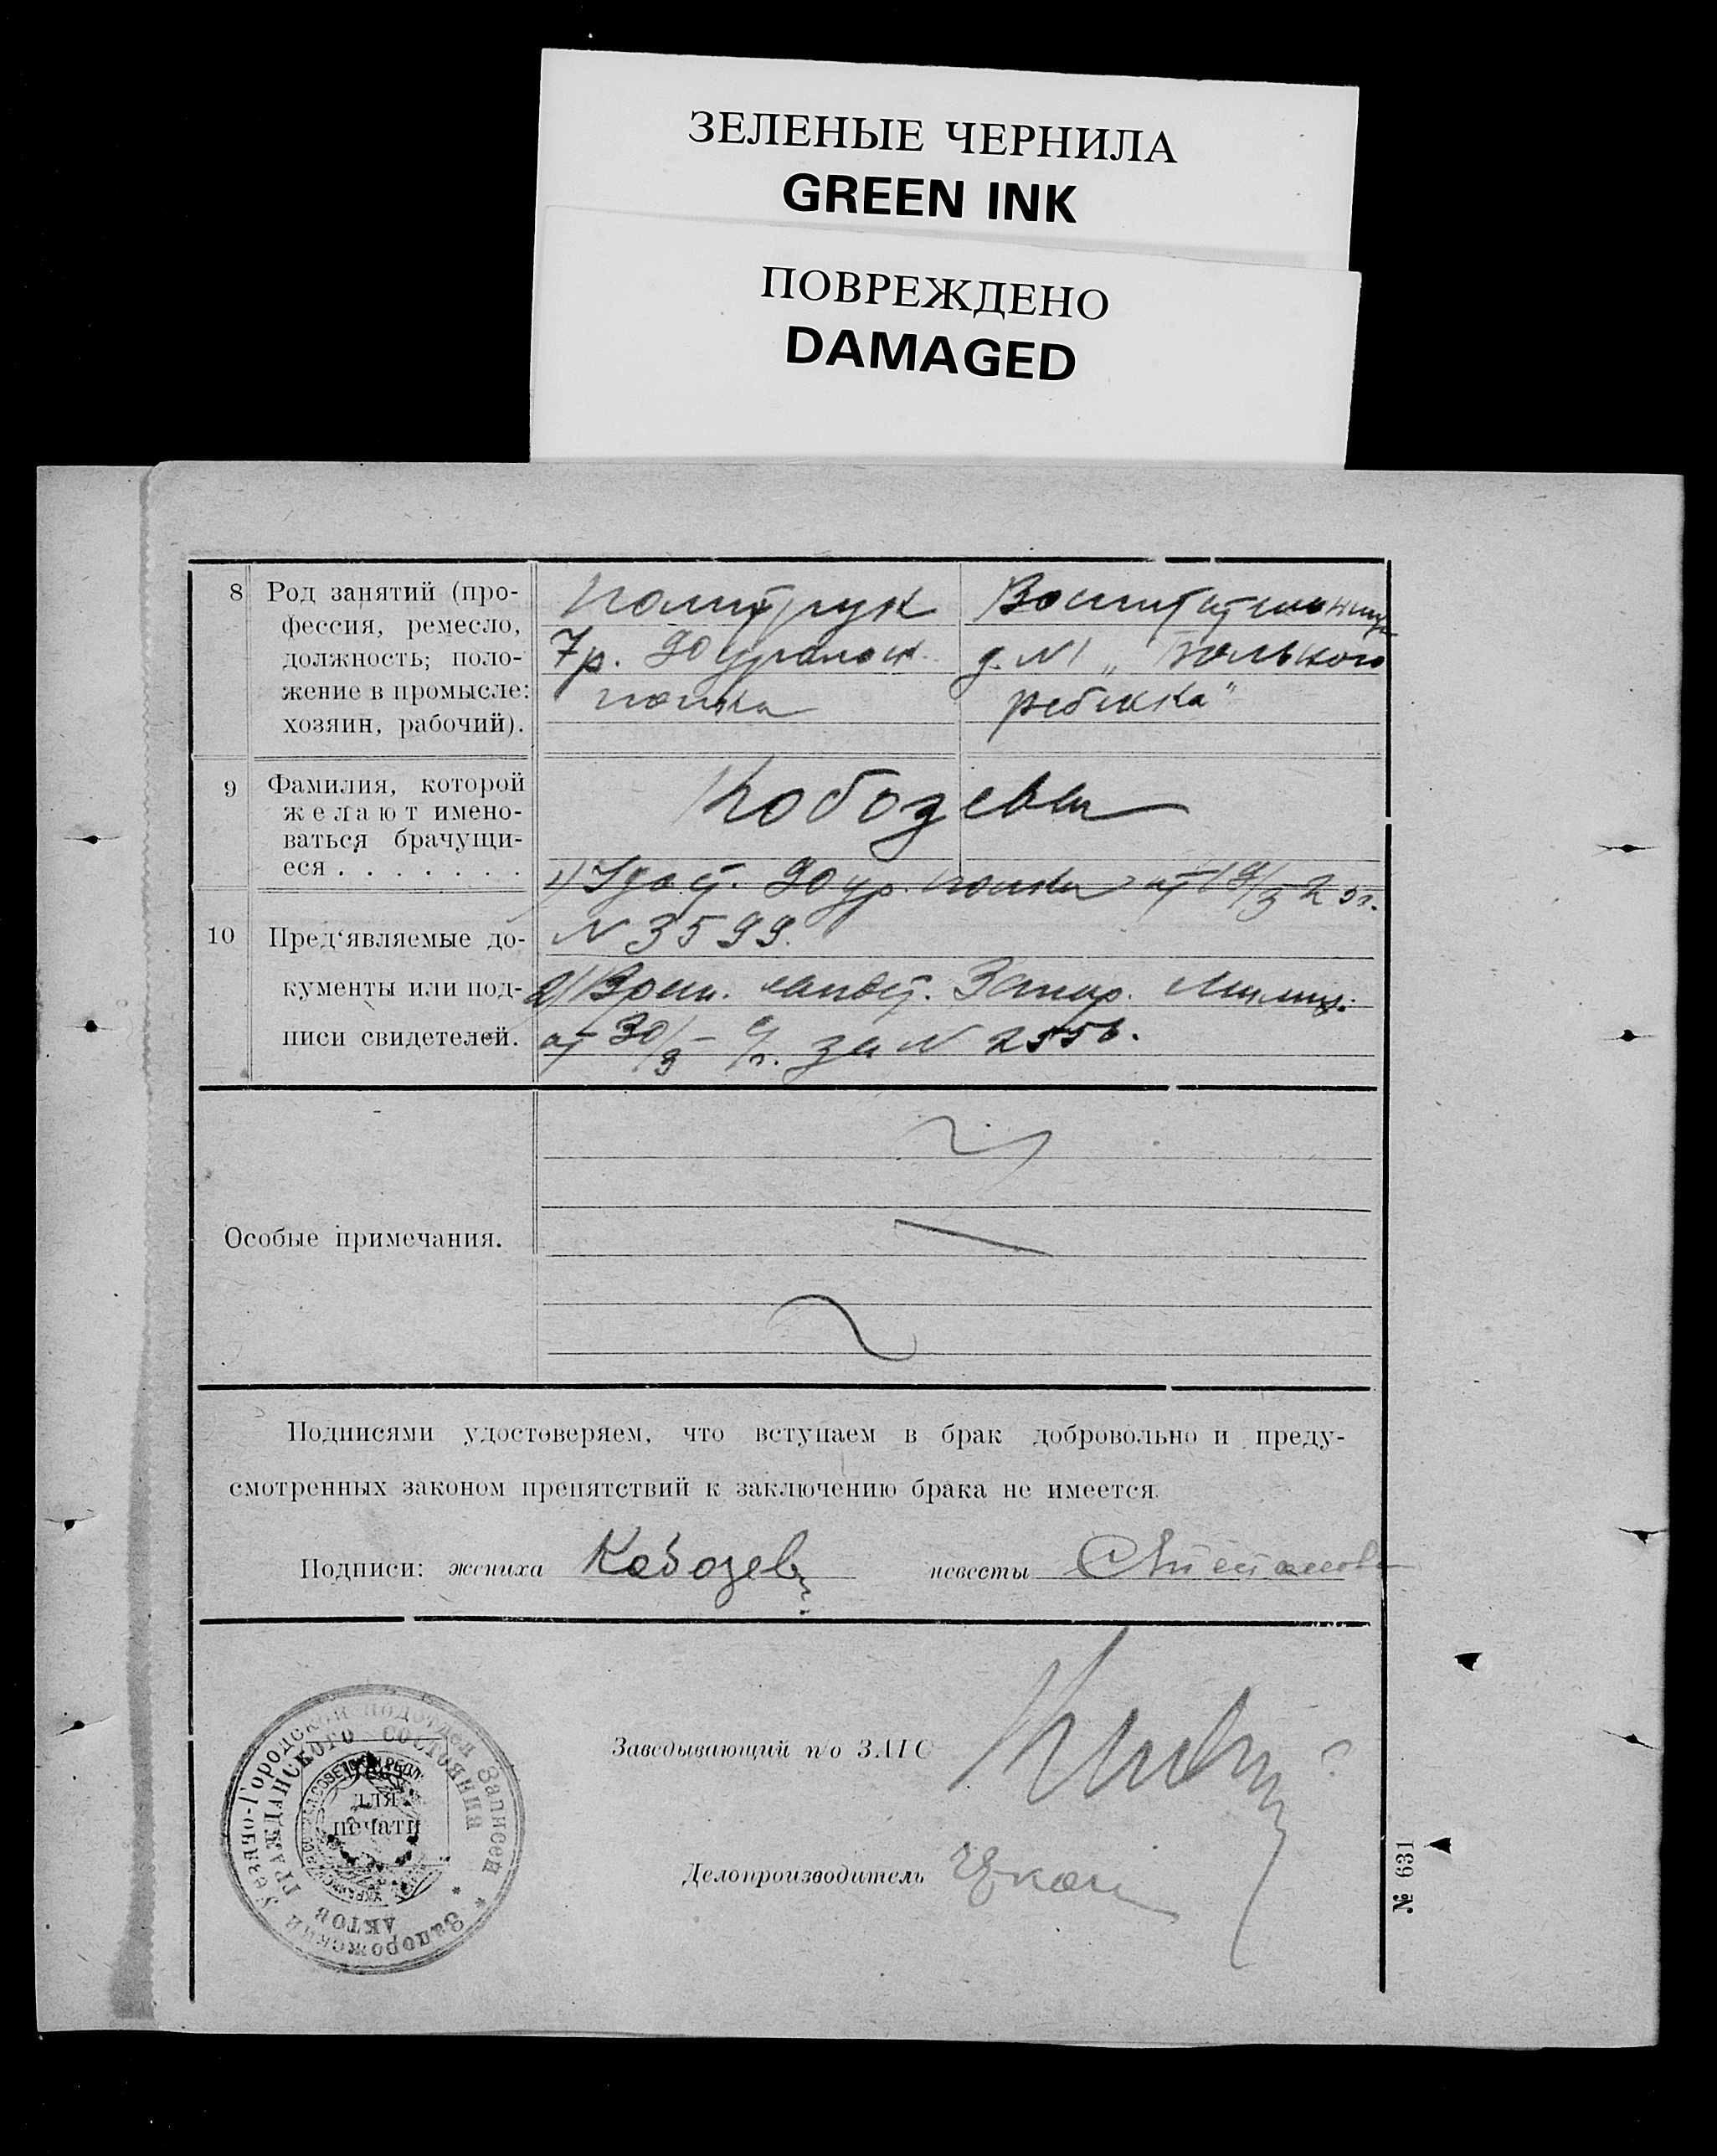 ЗЕЛЕНЫЕ ЧЕРНИЛА
GREEN INK
ПОВРЕЖДЕНО
DAMAGED
8 Род занятий (про-
фессия, ремесло,
должность; поло-
жение в промысле:
хозяин, рабочий).
Политрук
7р. 90 Уральск.
полка
Воспитательница
д. №1 „Больного
ребенка"
9 Фамилия, которой
желают имено-
ваться брачущи-
еся . . . . . . .
Кобозевы
10 Пред‘являемые до-
кументы или под-
писи свидетелей.
1) Удост. 90 ур. полка от 19/5 25г.
№ 3599.
2) Врем. Запор. Милиц.
от 30/5 с/г. за № 2556.
Особые примечания.
Подписями удостоверяем, что вступаем в брак добровольно и преду-
смотренных законом препятствий к заключению брака не имеется.
Подписи: жениха Кобозев невесты
Заведывающий п/о ЗАГС
Делопроизводитель
Запорожский Уездно-Городской подотдел Записей
АКТОВ ГРАЖДАНСКОГО СОСТОЯНИЯ
для
печати
№ 631